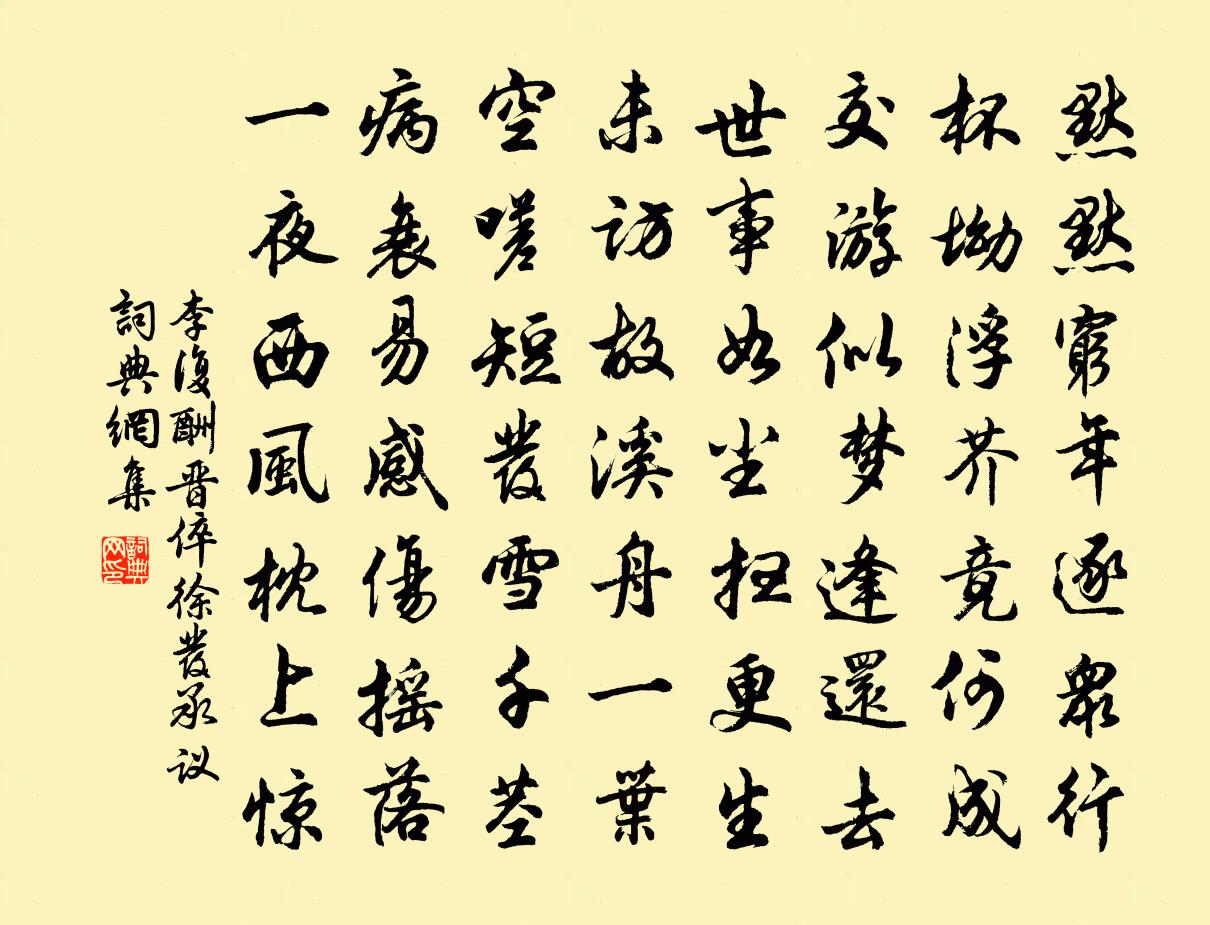 默默窮年逐眾行
杯坳浮芥竟何成
交游似梦逢還去
世事如尘扫更生
未访故溪舟一葉
空嗟短发雪千茎
病衰易感傷摇落
一夜西風枕上惊
李復酬晋倅徐发承议
詞典網集
詞典网印